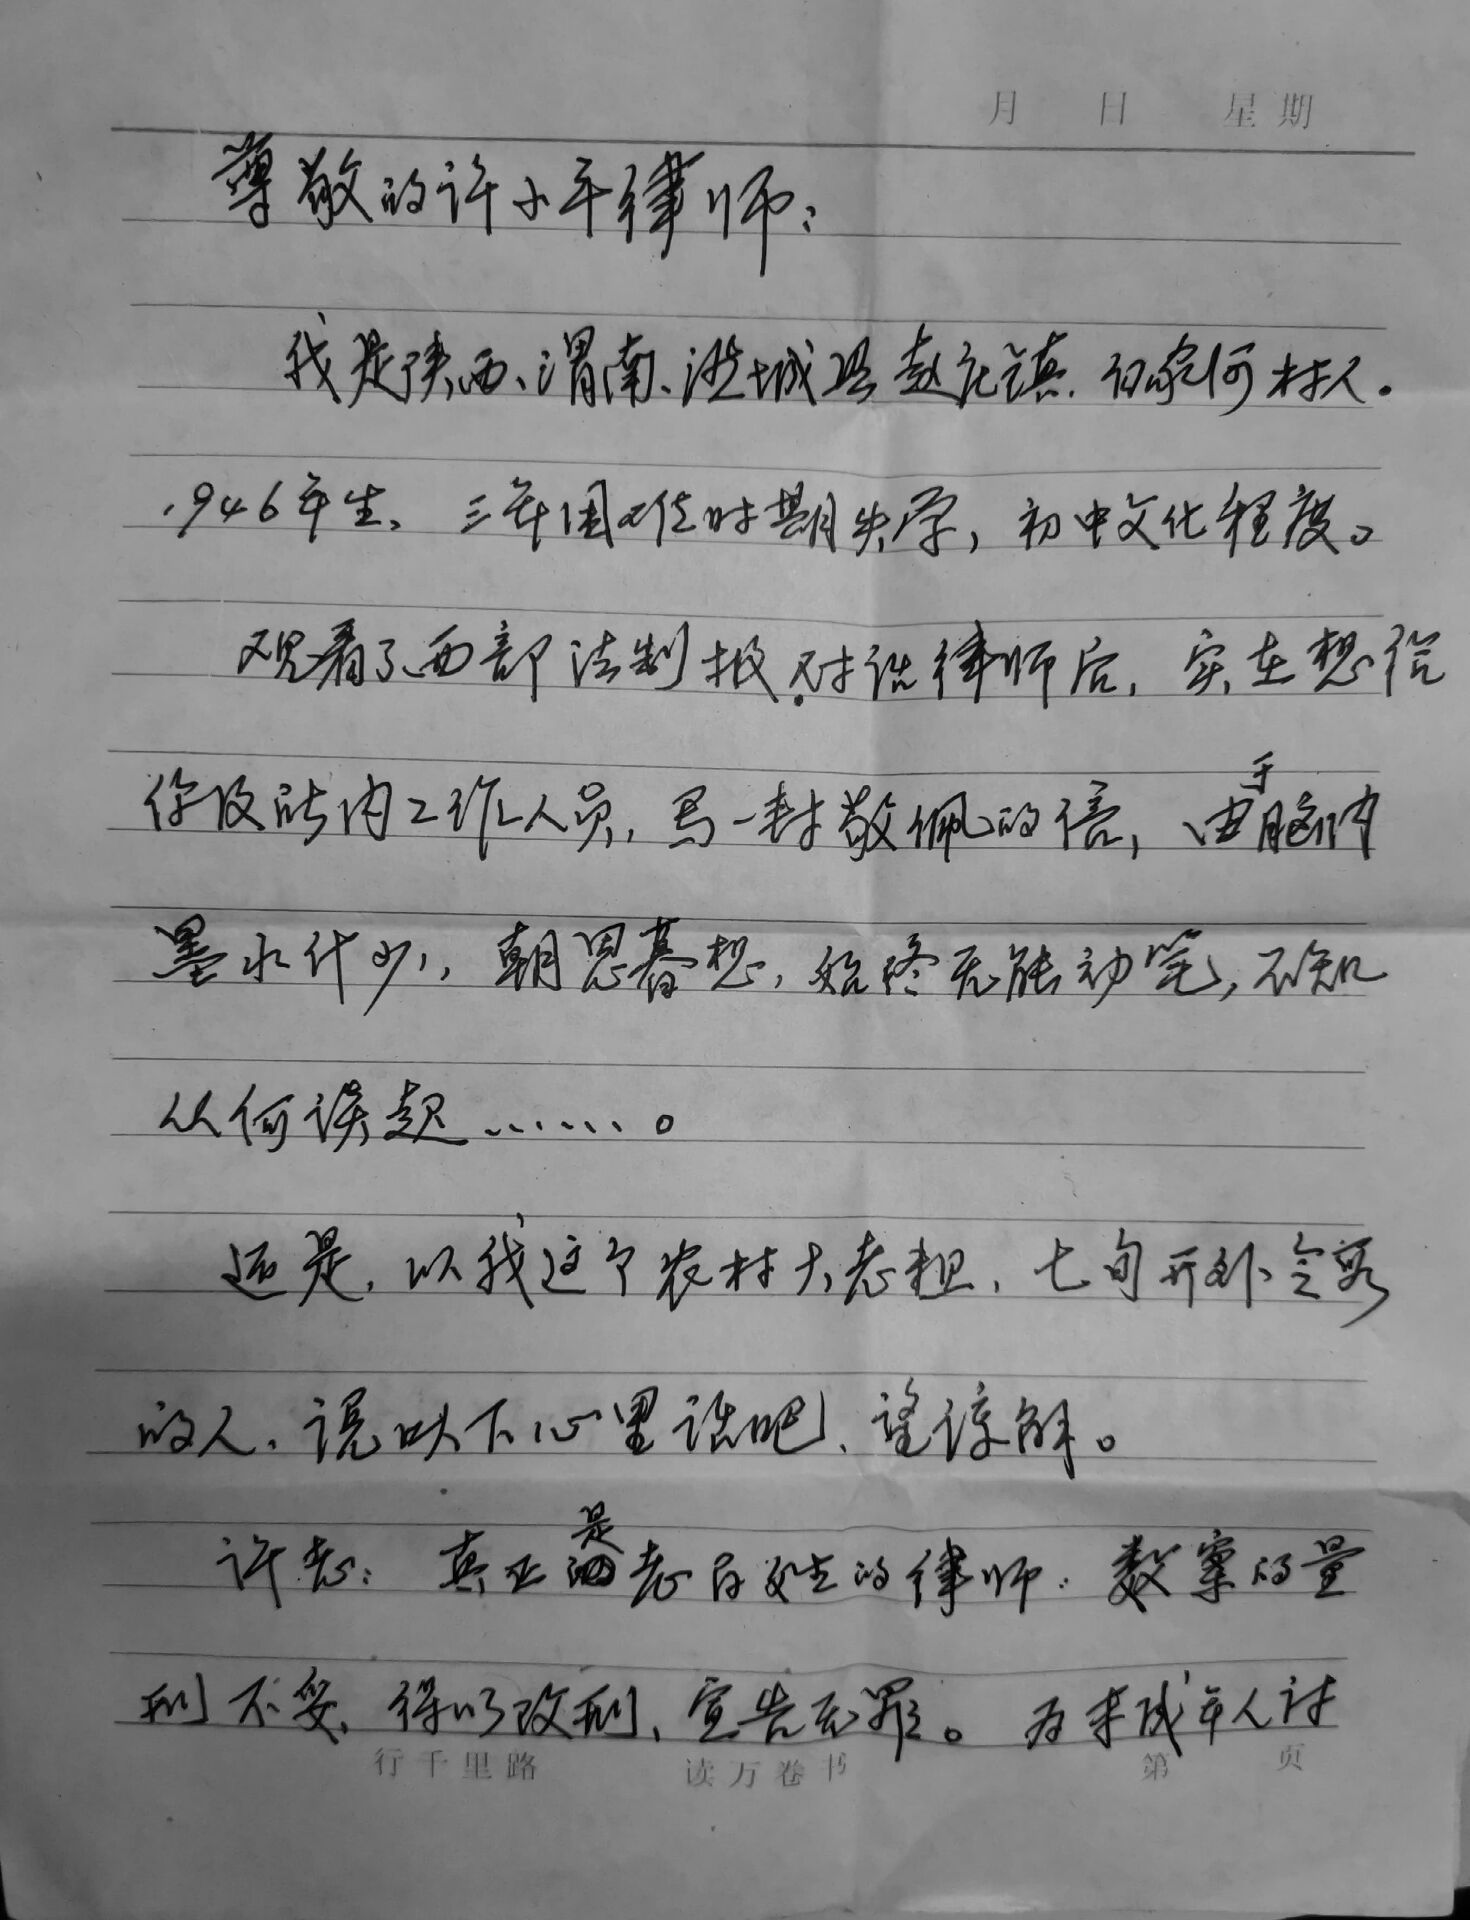 月 日 星期
尊敬的许小平律师：
我是陕西、渭南、澄城县赵庄镇、白家河村人。
1946年生、三年困难时期失学，初中文化程度。
观看了西部法制报，对话律师后，实在想给
你及所内工作人员，写一封敬佩的信，由于脑内
墨水什少，朝思暮想，始终无能动笔，不知
从何谈起……。
还是，以我这个农村大老粗，七旬开外
的人、说以下心里话吧、望谅解。
许老：真正是老百姓的律师：数案的量
刑不妥、得以改刑、宣告无罪。为未成年人讨
行千里路 读万卷书 第 页